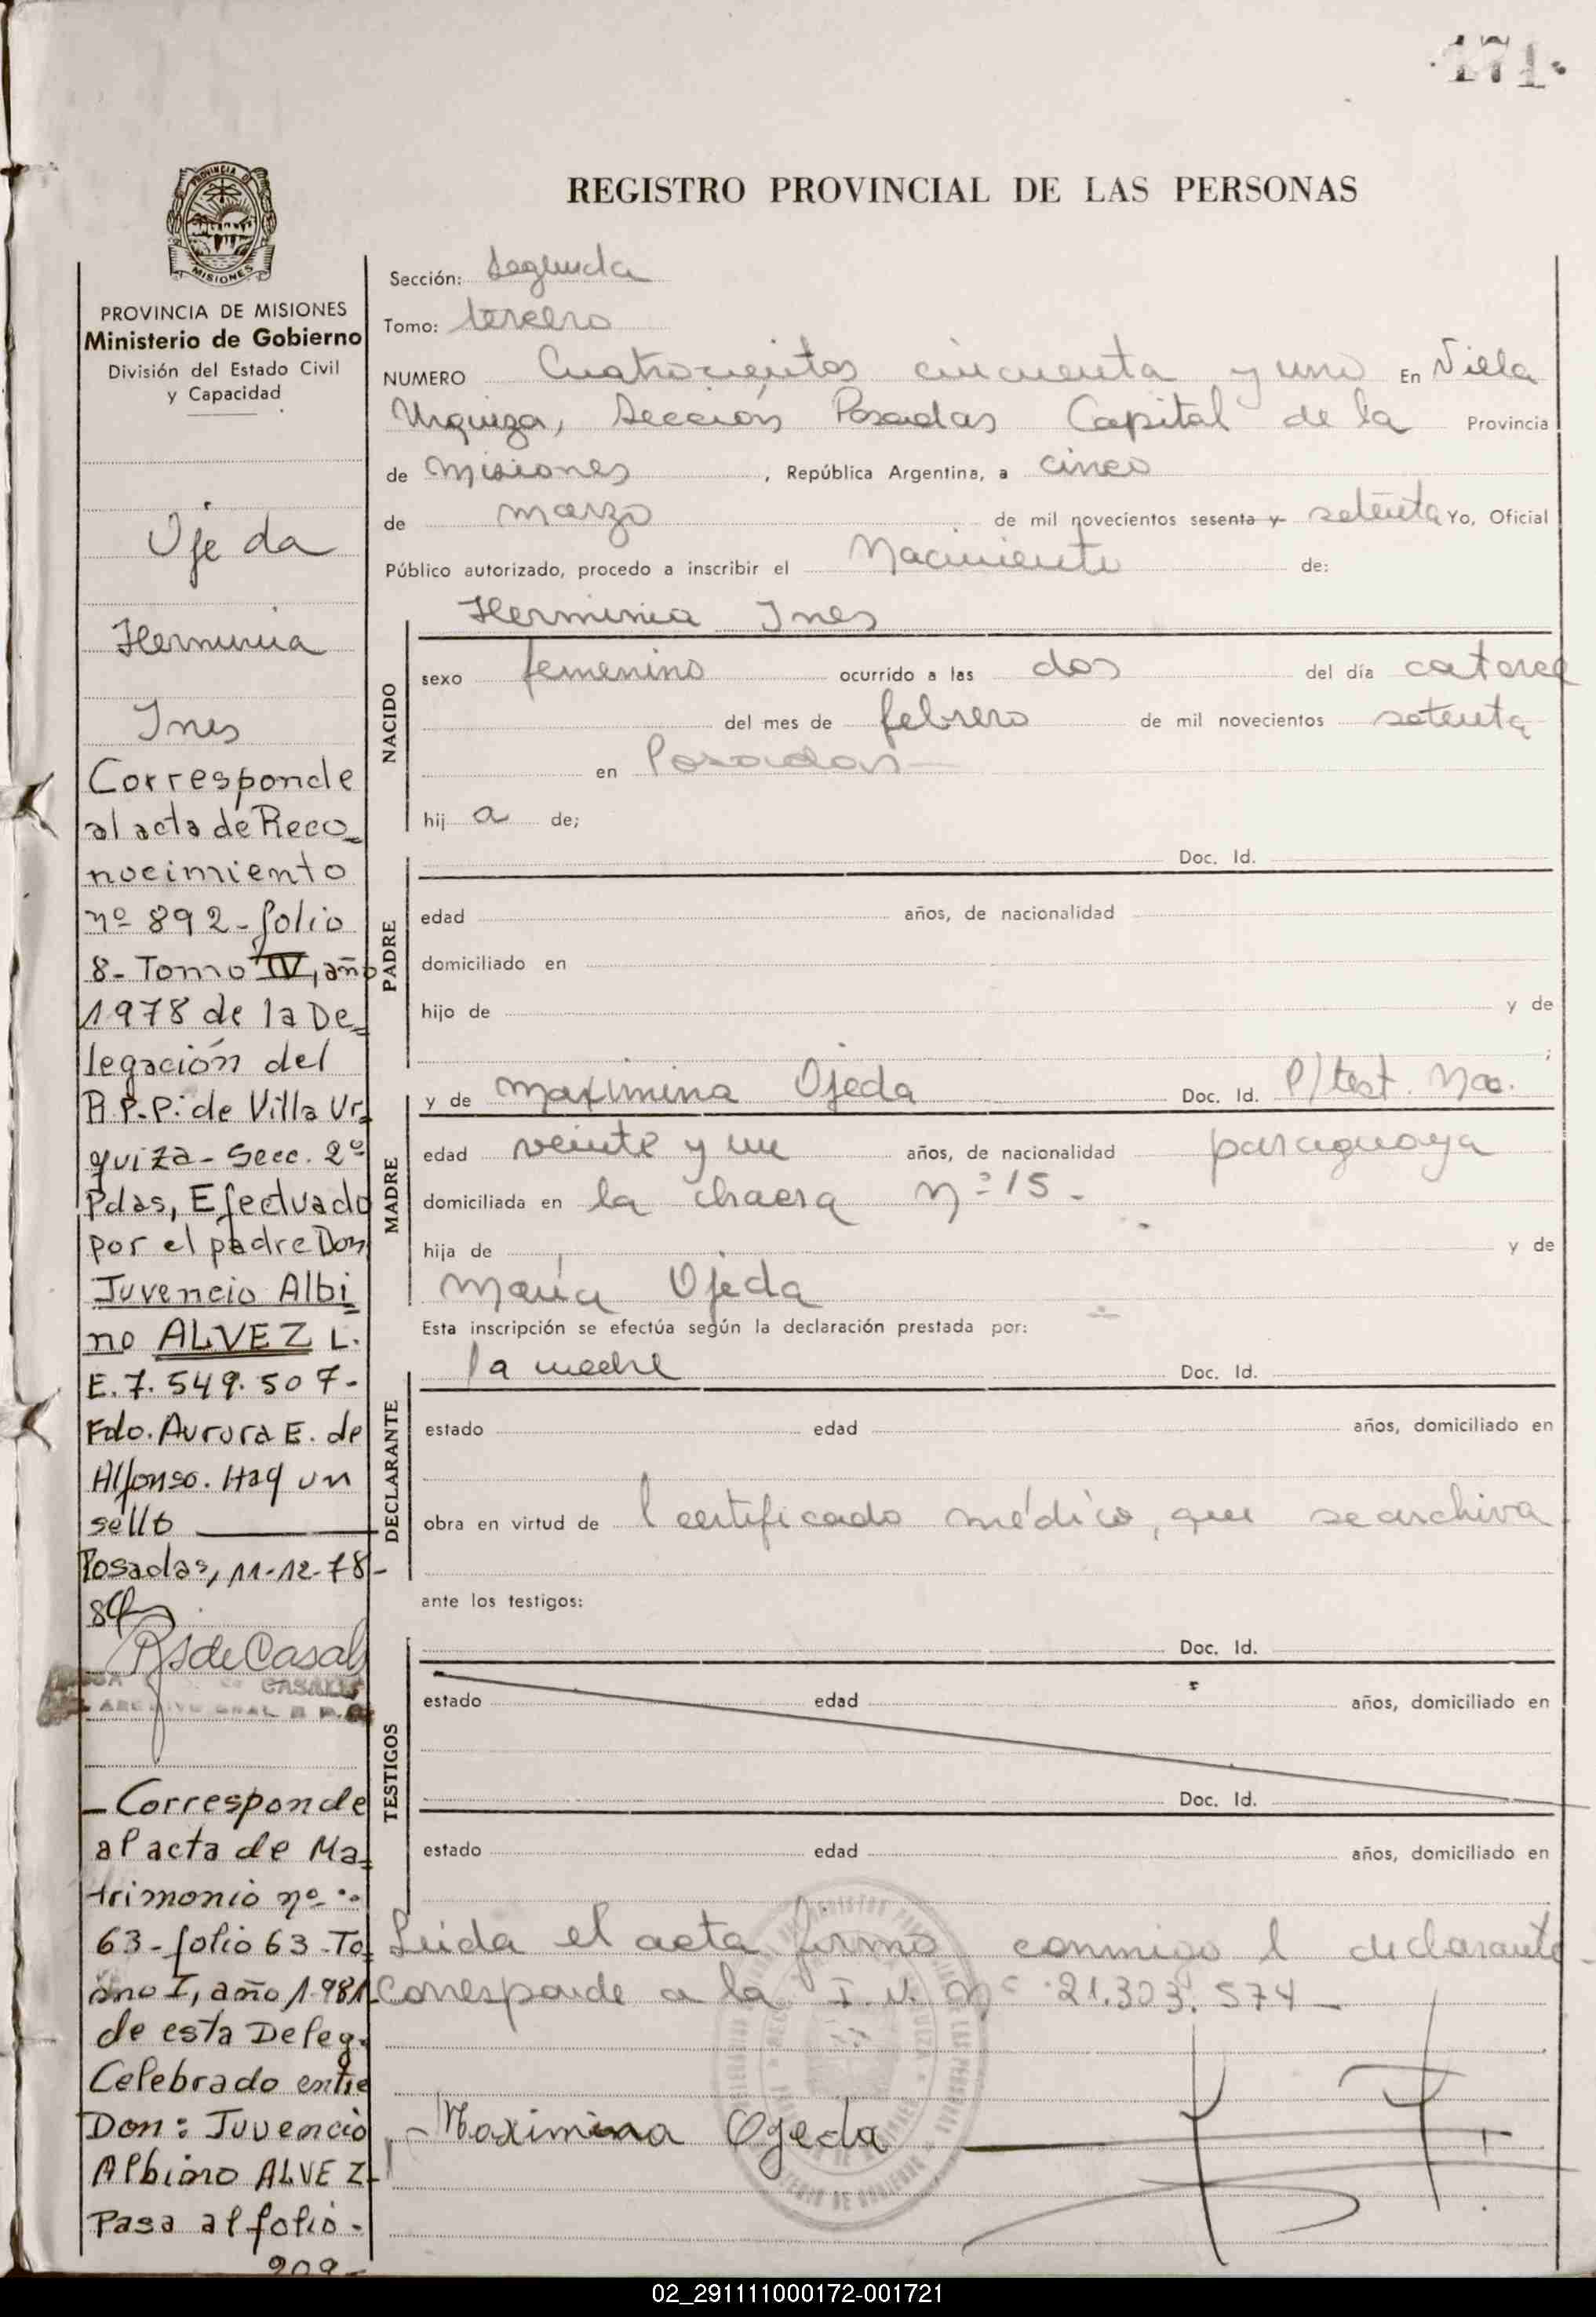 171.
REGISTRO PROVINCIAL DE LAS PERSONAS
PROVINCIA DE MISIONES
PROVINCIA DE MISIONES
Ministerio de Gobierno
División del Estado Civil
y Capacidad
Ojeda
Herminia
Ines
Corresponde
al acta de Reco_
nocimiento
nº 892 - folio
8 - Tomo IV, año
1978 de la De_
legación del
R.P.P. de Villa Ur_
quiza - Secc. 2º
Pdas, Efectuado
por el padre Don
Juvencio Albi_
no ALVEZ L.
E. 7.549.507-
Fdo. Aurora E. de
Alfonso. Hay un
sello
Posadas, 11-12-78-
RS de Casals
CASALS
ARCHIVO GRAL R.P.P.
- Corresponde
al acta de Ma_
trimonio nº
63 - folio 63 - To_
mo I, año 1981-
de esta Deleg.
Celebrado entre
Don: Juvencio
Albino ALVEZ-
Pasa al folio -
209-
Sección: Segunda
Tomo: tercero
NUMERO Cuatrocientos cincuenta y uno En Villa
Urquiza, Sección Posadas Capital de la Provincia
de Misiones , República Argentina, a cinco
de marzo de mil novecientos sesenta y setenta Yo, Oficial
Público autorizado, procedo a inscribir el Nacimiento de:
Herminia Ines
NACIDO
sexo femenino ocurrido a las dos del día catorce
del mes de febrero de mil novecientos setenta
en Posadas
hij a de;
PADRE
Doc. Id.
edad años, de nacionalidad
domiciliado en
hijo de y de
;
MADRE
y de Maximina Ojeda Doc. Id. P/test. Nac.
edad veinte y un años, de nacionalidad paraguaya
domiciliada en la chacra nº 15 -
hija de y de
María Ojeda
Esta inscripción se efectúa según la declaración prestada por:
DECLARANTE
la madre Doc. Id.
estado edad años, domiciliado en
obra en virtud de l certificado médico, que se archiva
ante los testigos:
TESTIGOS
Doc. Id.
estado edad años, domiciliado en
Doc. Id.
estado edad años, domiciliado en
Leída el acta firmo conmigo l declarante -
Corresponde a la I.N. Nº 21.303.574 -
- Maximina Ojeda
02_291111000172-001721